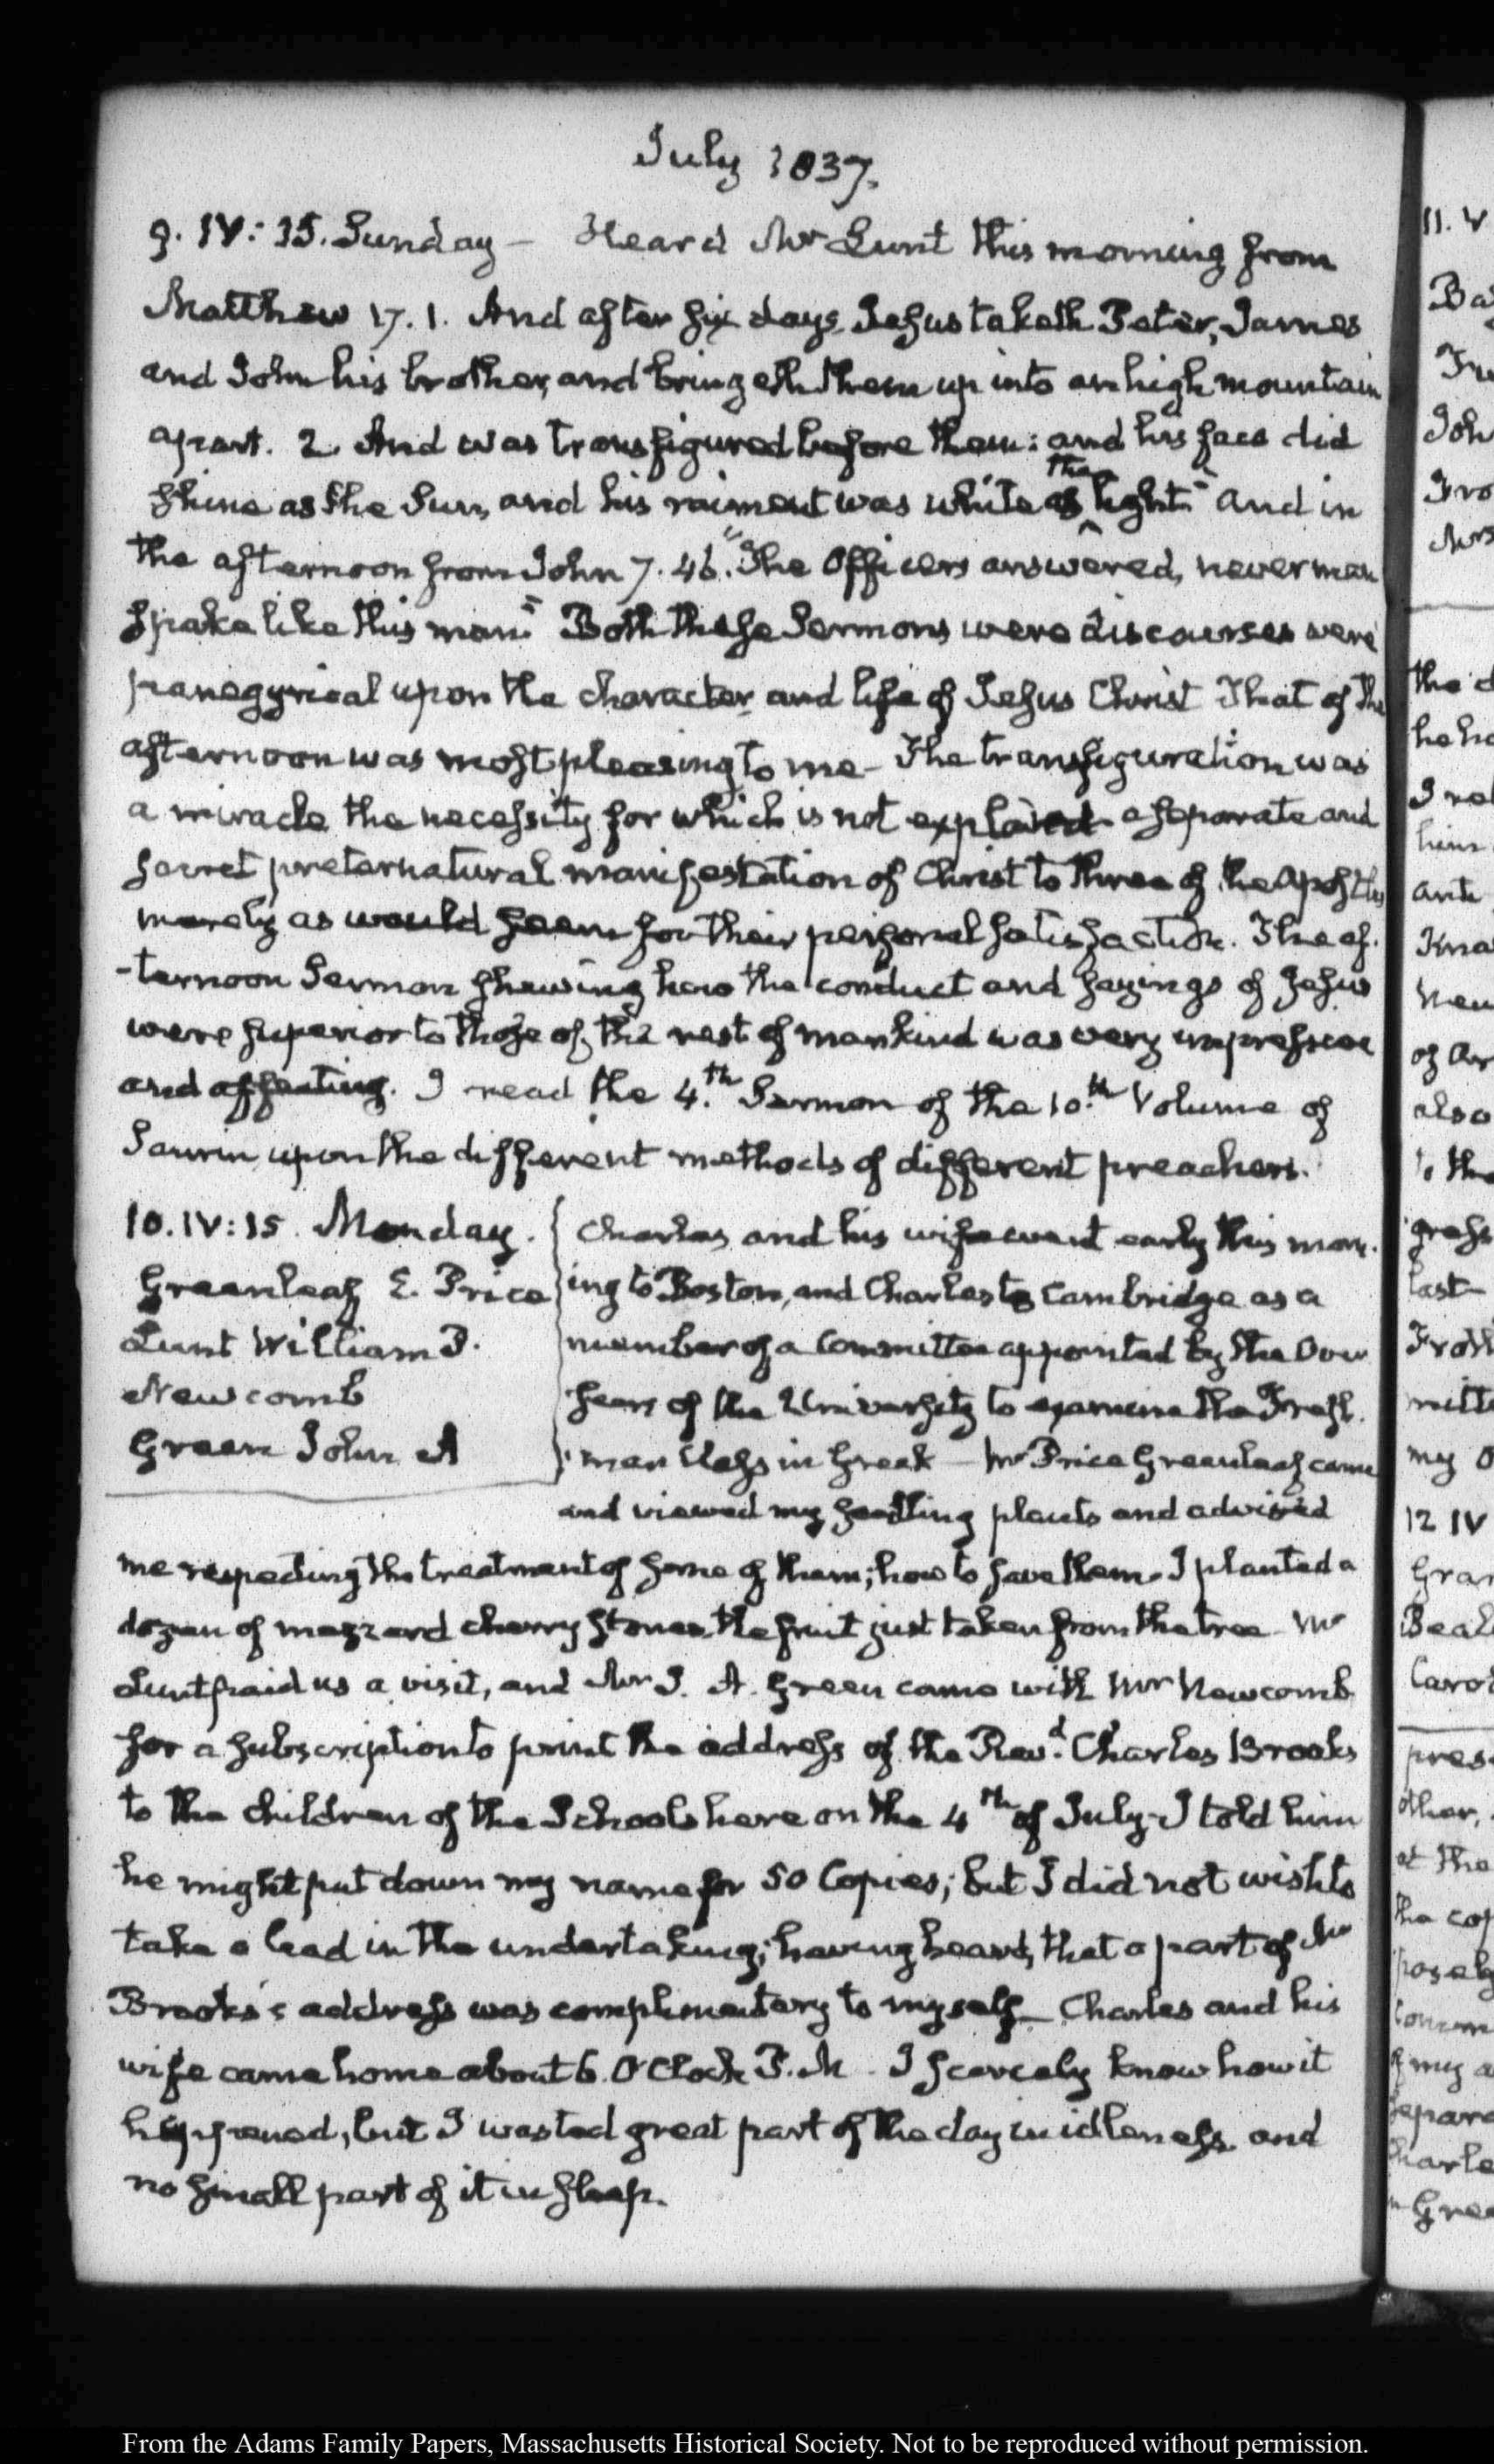 July 1837.
9. IV: 35. Sunday – Heard Mr Lunt this morning from
Matthew 17. 1. And after six days Jesus taketh Peter, James
and John his brother, and bringeth them up into an high mountain
apart. 2. And was transfigured before them: and his face did
the
shine as the Sun, and his raiment was white as light" And in
the afternoon from John 7. 46. "The Officers answered, never man
spake like this man." Both these Sermons were discourses were
panegyrical upon the character and life of Jesus Christ That of the
afternoon was most pleasing to me – The transfiguration was
a miracle the necessity for which is not explained a separate and
secret preternatural manifestation of Christ to three of the Apostles
merely as would seem for their personal satisfaction. The af-
-ternoon Sermon shewing how the conduct and sayings of Jesus
were superior to those of the rest of mankind was very impressive
and affecting. I read the 4.th Sermon of the 10.th Volume of
Saurin upon the different methods of different preachers.
10. IV: 15. Monday.
Greenleaf E. Price
Lunt William P.
Newcomb
Green John A
Charles and his wife went early this morn-
ing to Boston, and Charles to Cambridge as a
member of a Committee appointed by the Over
seers of the University to examine the Fresh-
man Class in Greek – Mr Price Greenleaf came
and viewed my seedling plants and advised
me respecting the treatment of some of them; how to save them – I planted a
dozen of mazzard cherry stones, the fruit just taken from the tree – Mr
Lunt paid us a visit, and Mr J. A. Green came with Mr Newcomb
for a subscription to print the address of the Rev.d Charles Brooks
to the children of the Schools here on the 4th of July – I told him
he might put down my name for 50 Copies; but I did not wish to
take a lead in the undertaking; having heard, that a part of Mr
Brooks's address was complimentary to myself – Charles and his
wife came home about 6. O'Clock P. M – I scarcely know how it
happened, but I wasted great part of the day in idleness, and
no small part of it in sleep.
From the Adams Family Papers, Massachusetts Historical Society. Not to be reproduced without permission.